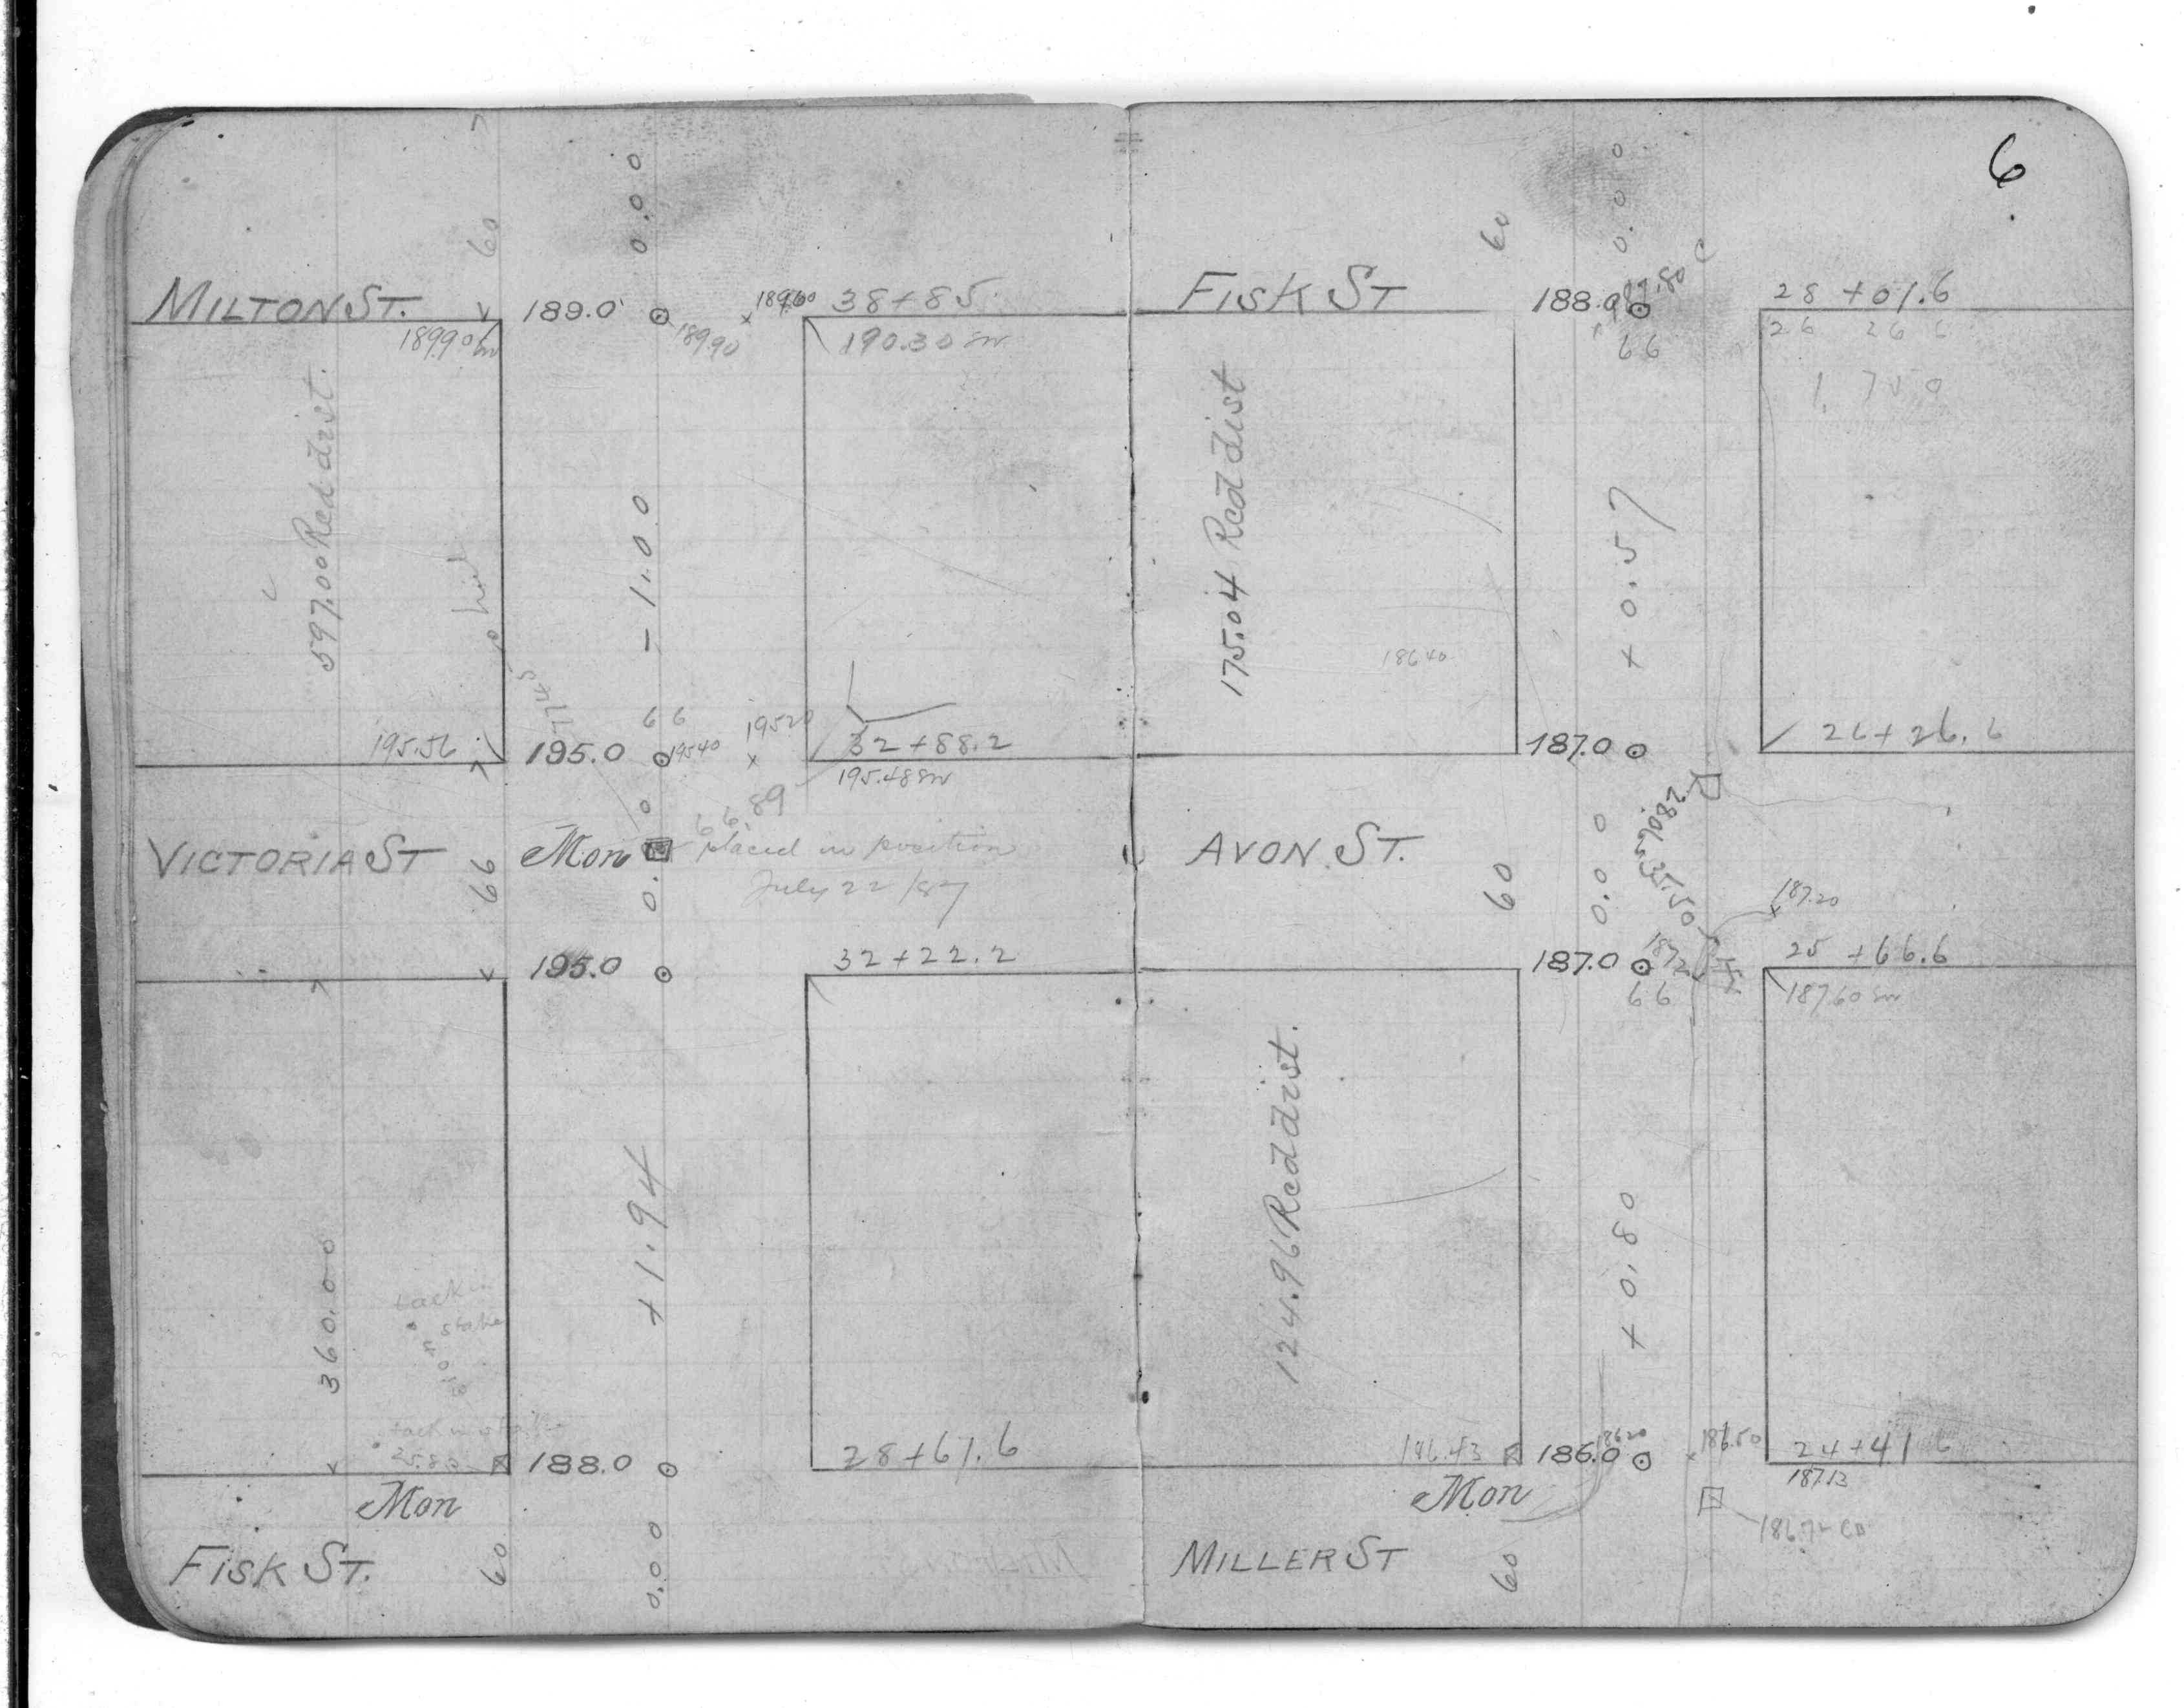 6
60
0.0.0
MILTON ST.
189.0
189.60
38+85
189.90 Sw
189.90
190.30 Sw
597.00 Recd dist.
-1.00
66
195.20
195.56
195.0
195.40
32+88.2
195.48 Sw
66.89
VICTORIA ST
66
Mon
0.0
placed in position
July 22/87
195.0
32+22.2
360.00
+1.94
tack in
stake
tack in stake
25.80
188.0
28+61.6
Mon
FISK ST.
60
0.00
60
0.00
FISK ST
188.0
187.80
28+01.6
66
26 26 6
1.750
175.04 Recd dist
+0.57
186.40
187.0
26+26.6
AVON ST.
60
0.00
35.50
187.20
187.0
187.2
25+66.6
66
187.60 Sw
124.96 Recd dist.
+0.80
186.43
186.0
186.20
186.50
24+41.6
187.13
Mon
MILLER ST
60